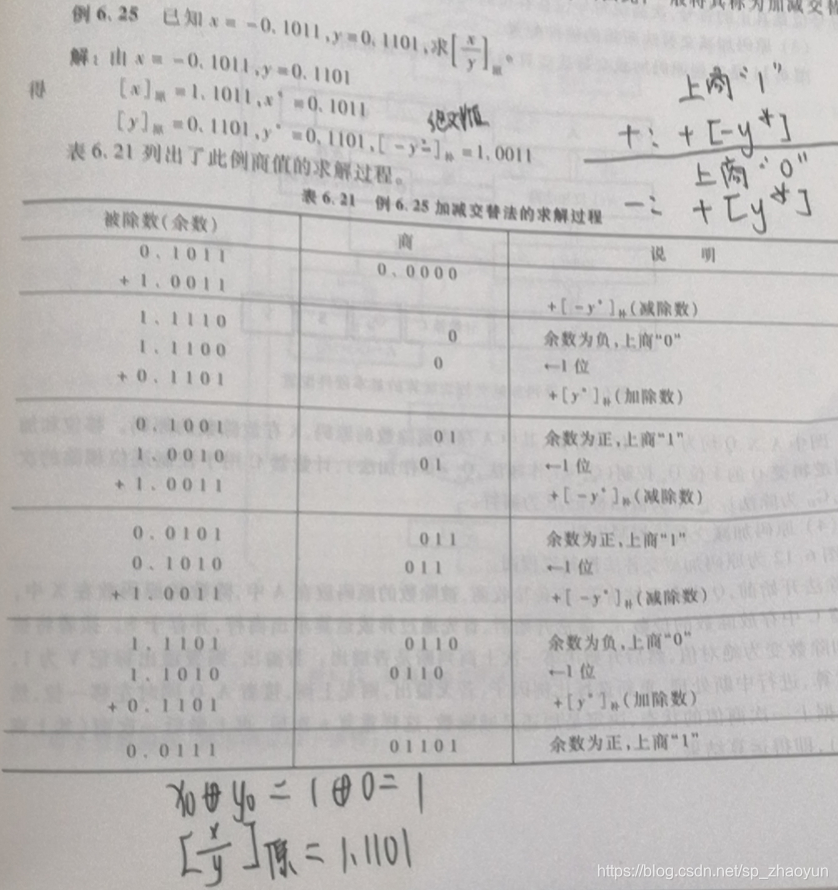 般将其称为加减交替
例 6.25 已知 x=-0.1011,y=0.1101,求[x/y]原。
解:由 x=-0.1011,y=0.1101
得
[x]原=1.1011,x*=0.1011
绝对值
[y]原=0.1101,y*=0.1101,[-y*]补=1.0011
表 6.21 列出了此例商值的求解过程。
上商"1"
+: +[-y*]
上商"0"
-: +[y*]
表 6.21 例 6.25 加减交替法的求解过程
被除数(余数) 商 说 明
0.1011 0.0000
+1.0011 +[-y*]补(减除数)
1.1110 0 余数为负,上商"0"
1.1100 0 ←1 位
+0.1101 +[y*]补(加除数)
0.1001 01 余数为正,上商"1"
1.0010 01 ←1 位
+1.0011 +[-y*]补(减除数)
0.0101 011 余数为正,上商"1"
0.1010 011 ←1 位
+1.0011 +[-y*]补(减除数)
1.1101 0110 余数为负,上商"0"
1.1010 0110 ←1 位
+0.1101 +[y*]补(加除数)
0.0111 01101 余数为正,上商"1"
x0⊕y0=1⊕0=1
[x/y]原=1.1101
https://blog.csdn.net/sp_zhaoyun